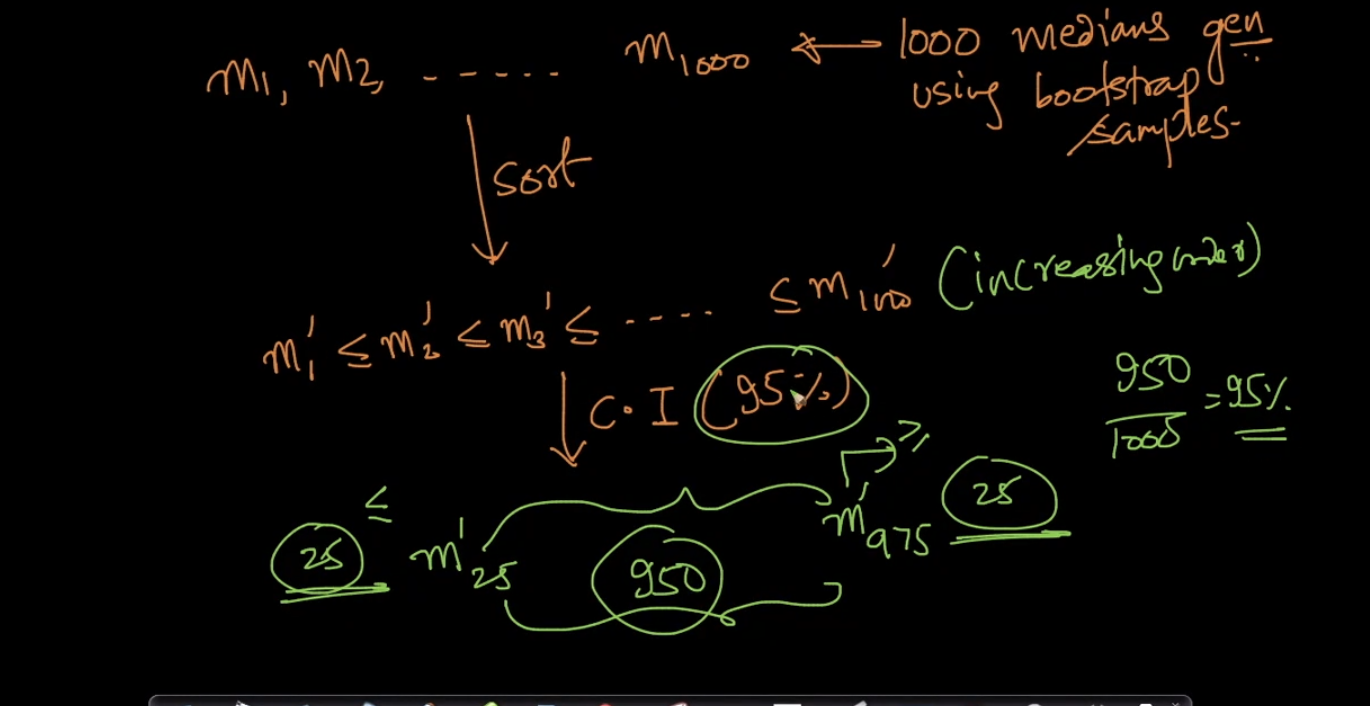 m₁, m₂, ------ m₁₀₀₀ ← 1000 medians gen
using bootstrap
samples-
sort
m₁' ≤ m₂' ≤ m₃' ≤ ---- ≤ m₁₀₀₀' (increasing order)
C.I (95%)
950/1000 = 95%
25 ≤ m'₂₅ 950 m'₉₇₅ ≥ 25